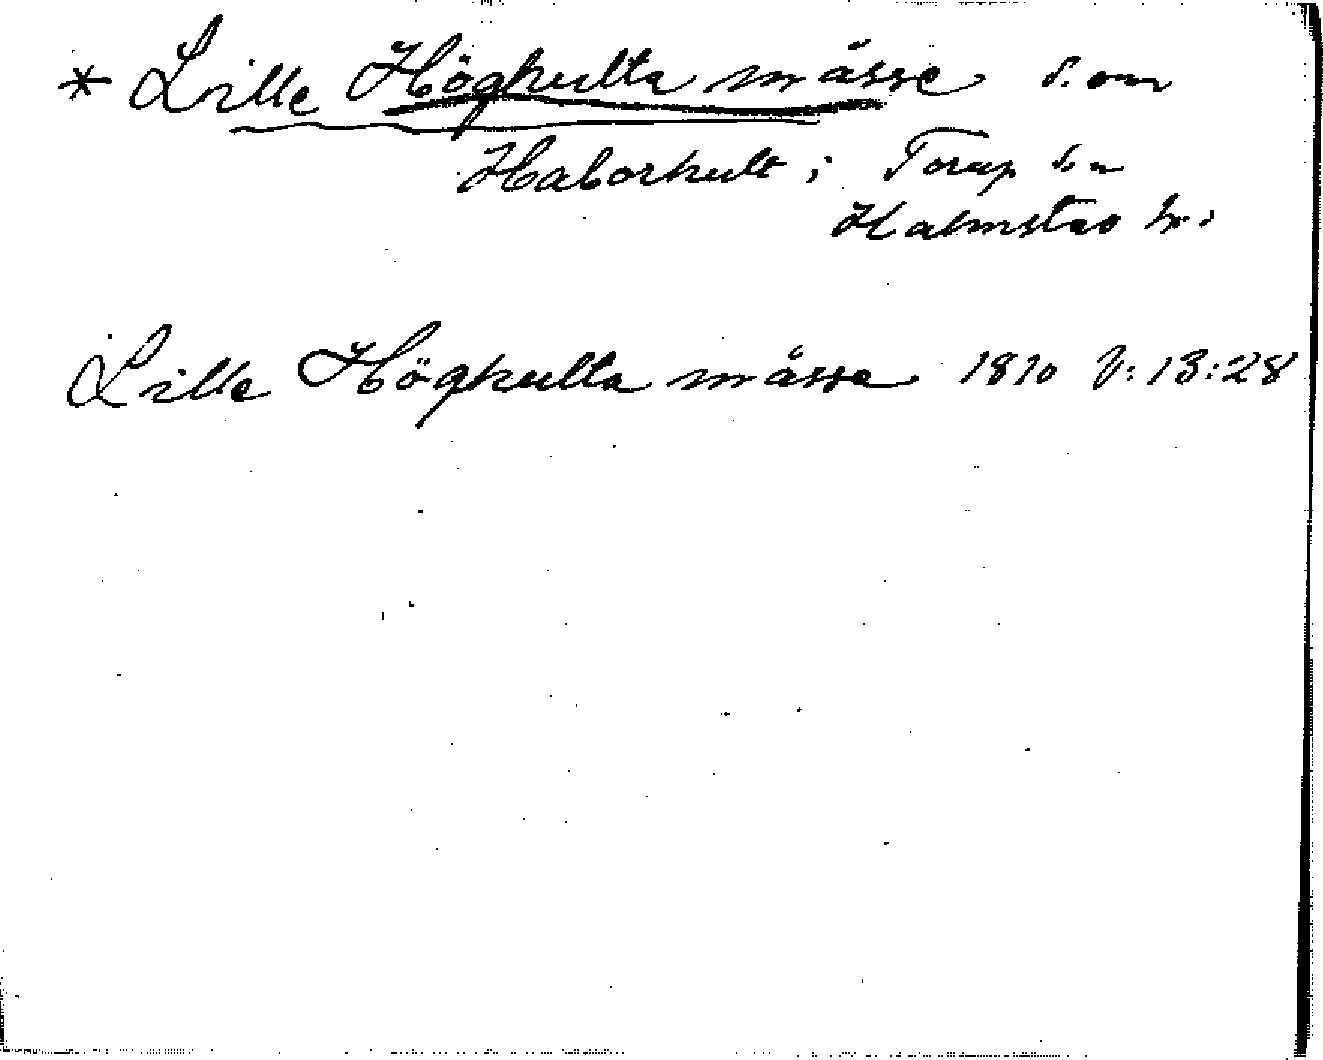 * Lille Högkulta måsse s. om
Haborhult i Torup sn
Halmstad hd.
Lille Högkulta måsse 1810 V:13:28